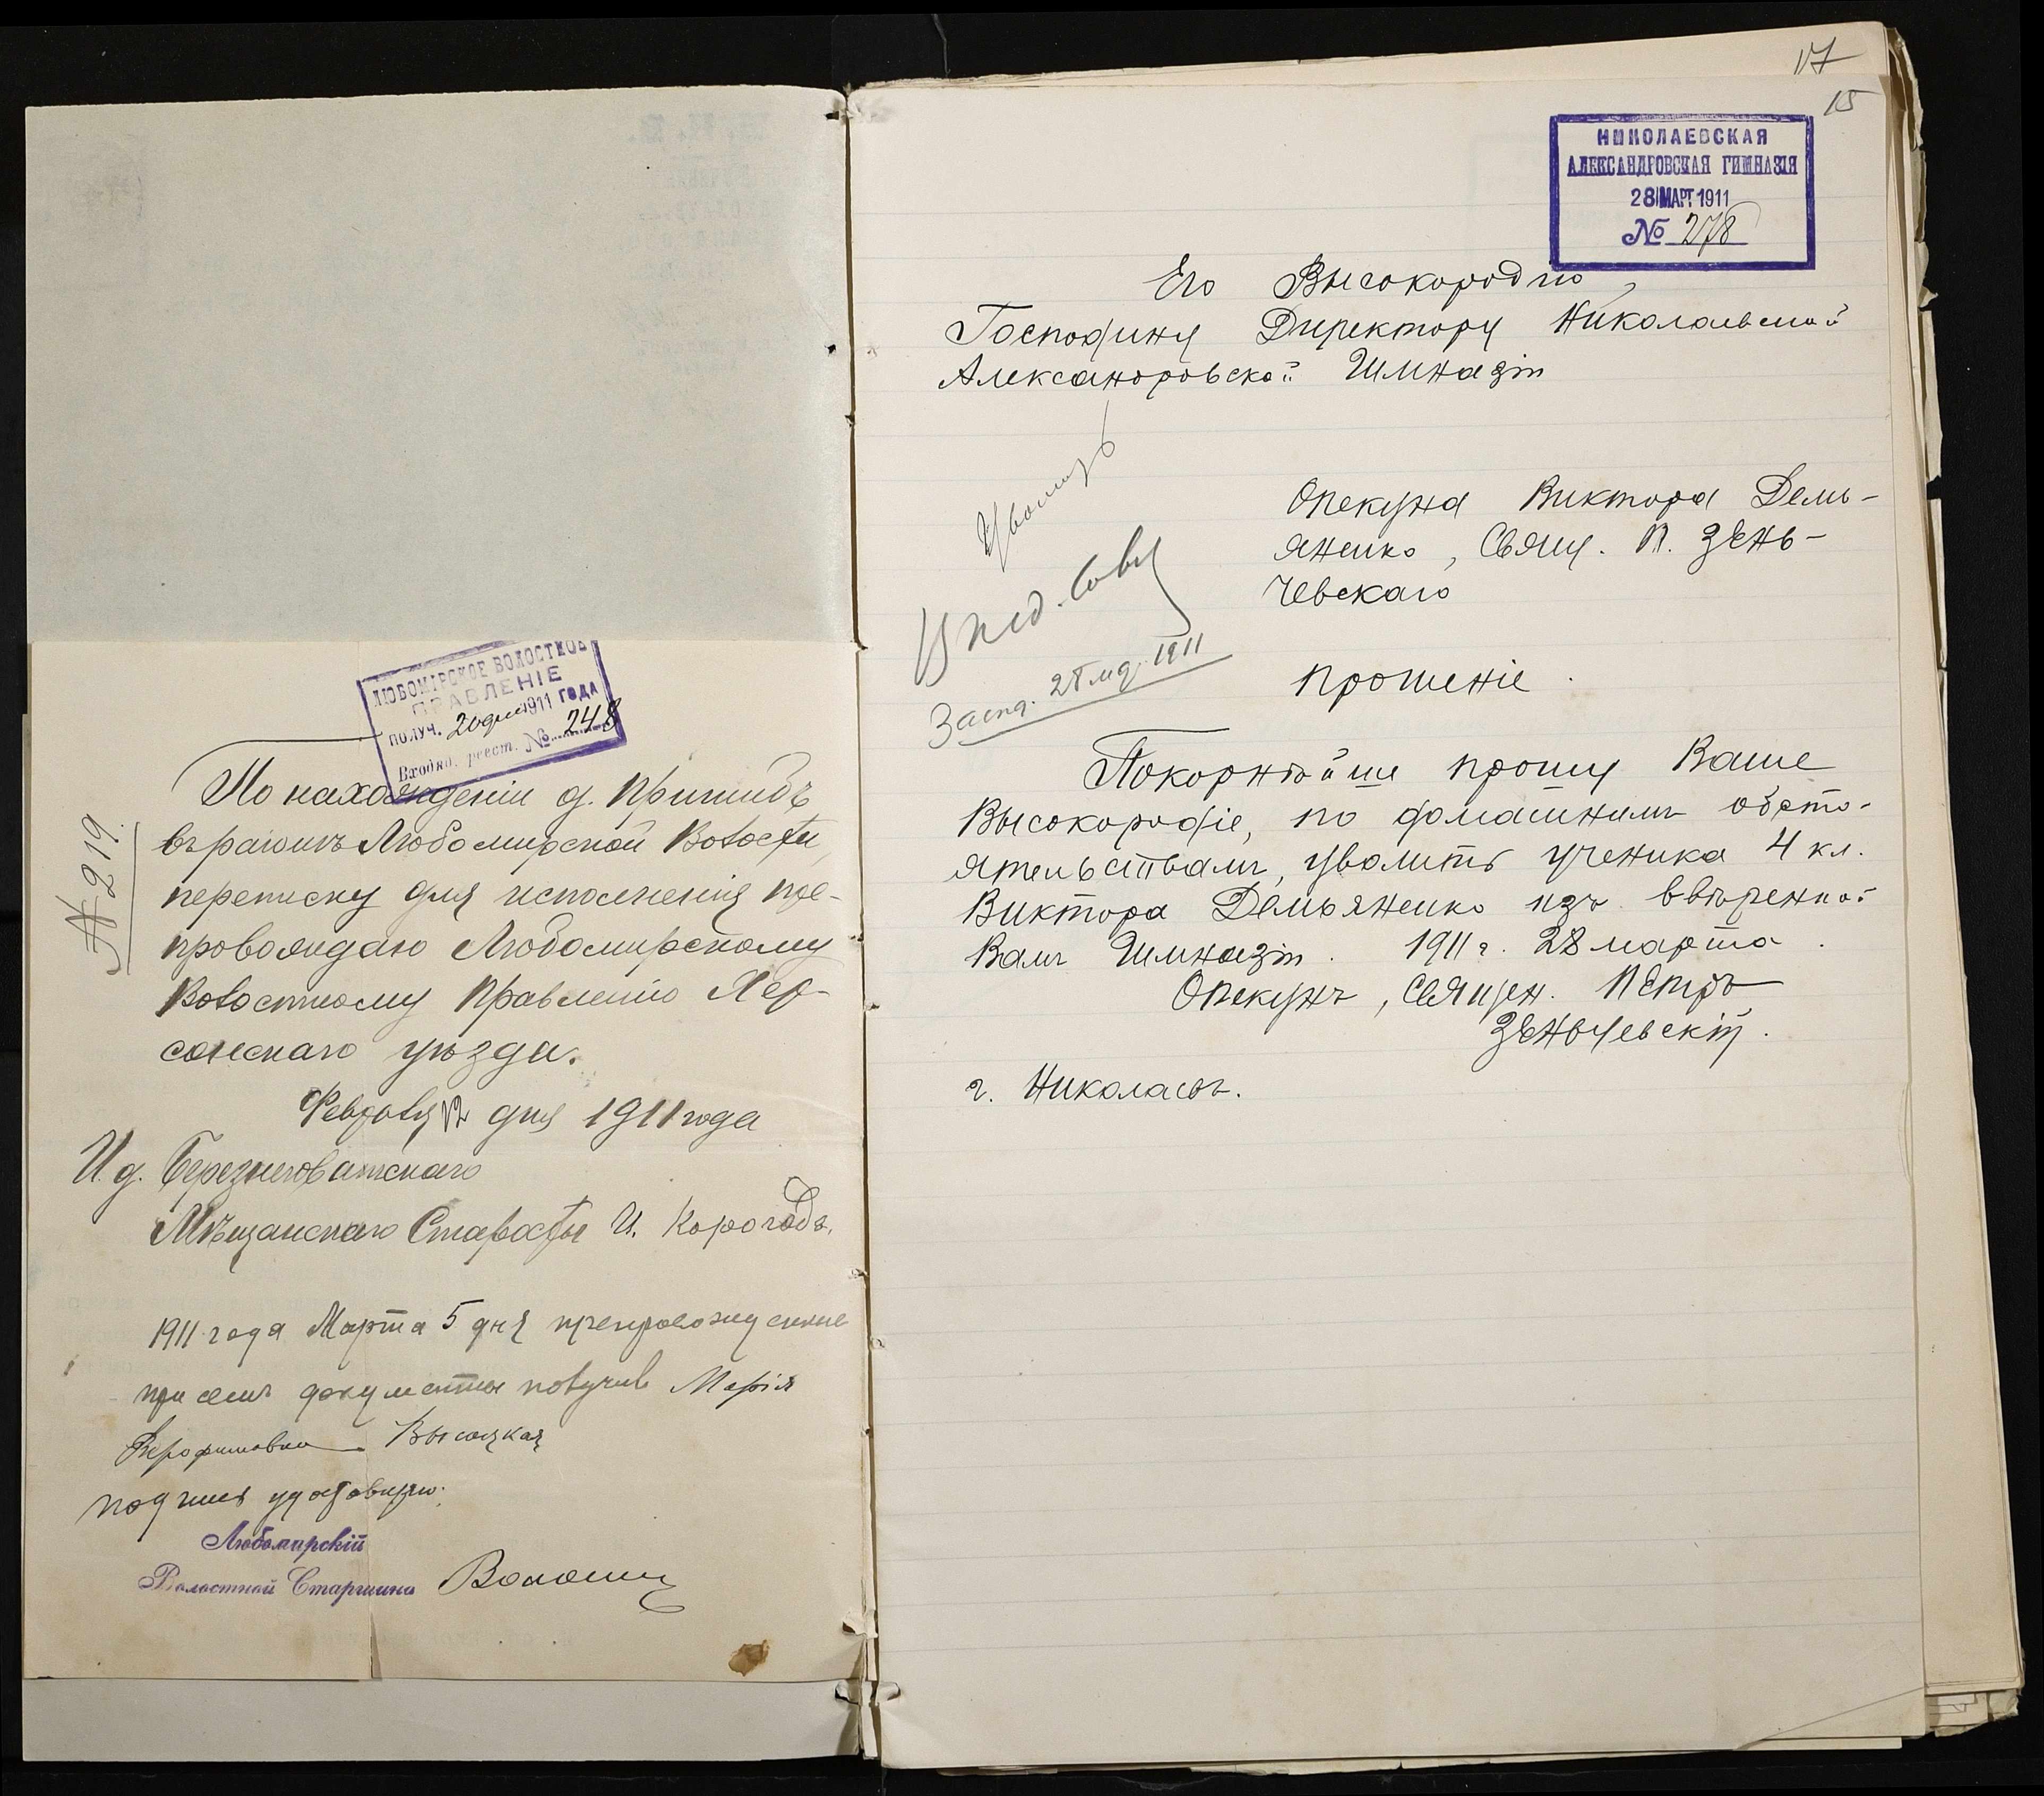 ЛЮБОМІРСКОЕ ВОЛОСТНОЕ
ПРАВЛЕНІЕ
ПОЛУЧ. 20 1911 ГОДА
Входящ. реест. № 248
№ 219
По нахожденіи д. Пришибъ
въ раіонѣ Любомирской Волости,
переписку для исполненія пре-
провождаю Любомирскому
Волостному Правленію Хер-
сонскаго уѣзда.
Февраля 12 дня 1911 года
И. д. Березнеговатскаго
Мѣщанскаго Старосты И. Корогодъ.
1911 года Марта 5 дня препровожденные
при семъ документы получив Марія
Высоцкая
подпись удостовѣряю:
Любомирскій
Волостной Старшина Волошин
17
15
НИКОЛАЕВСКАЯ
АЛЕКСАНДРОВСКАЯ ГИМНАЗІЯ
28 МАРТ 1911
№ 278
Его Высокородію,
Господину Директору Николаевской
Александровской Гимназіи
Уволить
В пед. Совѣ
28 1911
Опекуна Виктора Демь-
яненко, Свящ. П. Зень-
чевскаго
Прошеніе.
Покорнѣйше прошу Ваше
Высокородіе, по домашнимъ обсто-
ятельствамъ, уволить ученика 4 кл.
Виктора Демьяненко изъ ввѣренной
Вамъ Гимназіи. 1911 г. 28 марта.
Опекунъ, Священ. Петръ
Зеньчевскій.
г. Николаевъ.